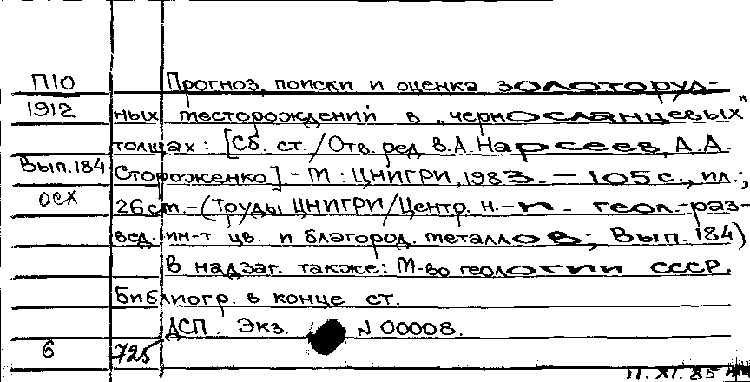 П10 Прогноз, поиски и оценка золоторуд-
1912 ных месторождений в "черносланцевых"
толщах: [Сб. ст./Отв. ред В.А. Нарсеев, А.А.
Вып.184 Стороженко] - М: ЦНИГРИ, 1983. - 105 с., ил.;
осх 26 см. - (Труды ЦНИГРИ/Центр. н.-и. геол.-раз-
вед. ин-т цв. и благород. металлов; Вып. 184)
В надзаг. также: М-во геологии СССР.
Библиогр. в конце ст.
ДСП. Экз. N 00008.
6 725
11. XI. 85